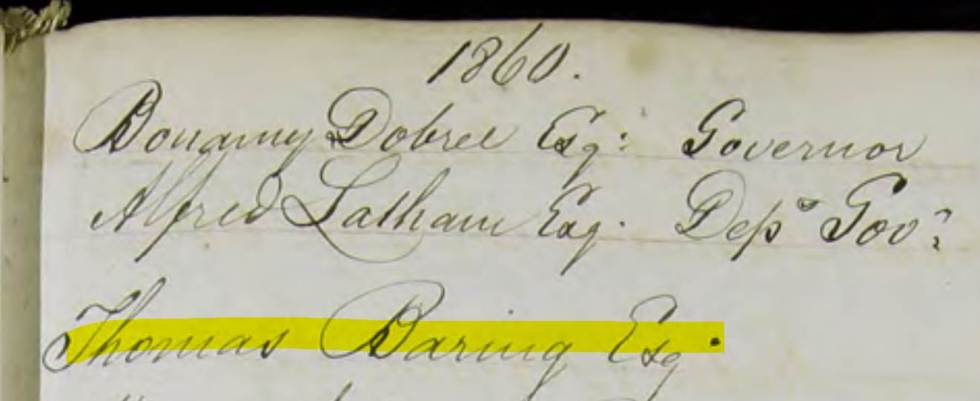 1860.
Bonamy Dobree Esq: Governor
Alfred Latham Esq. Depy Govr
Thomas Baring Esq.